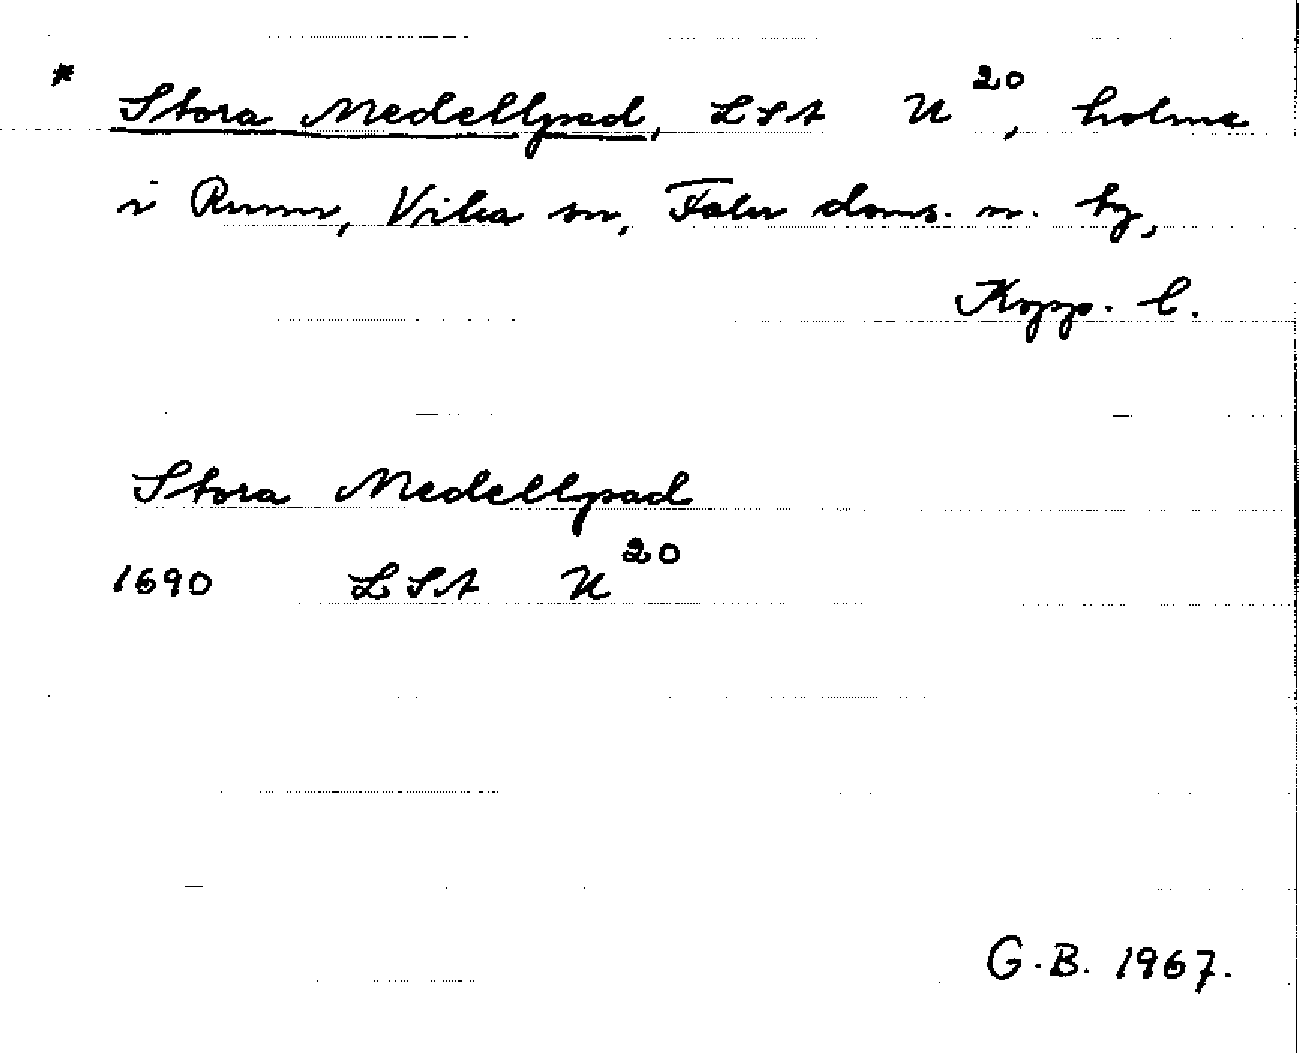 * Stora Medellpad, LSA U 20, holme
i Runn, Vika sn, Falu doms. n. by,
Kopp. l.
Stora Medellpad
1690 LSA U 20
G.B. 1967.